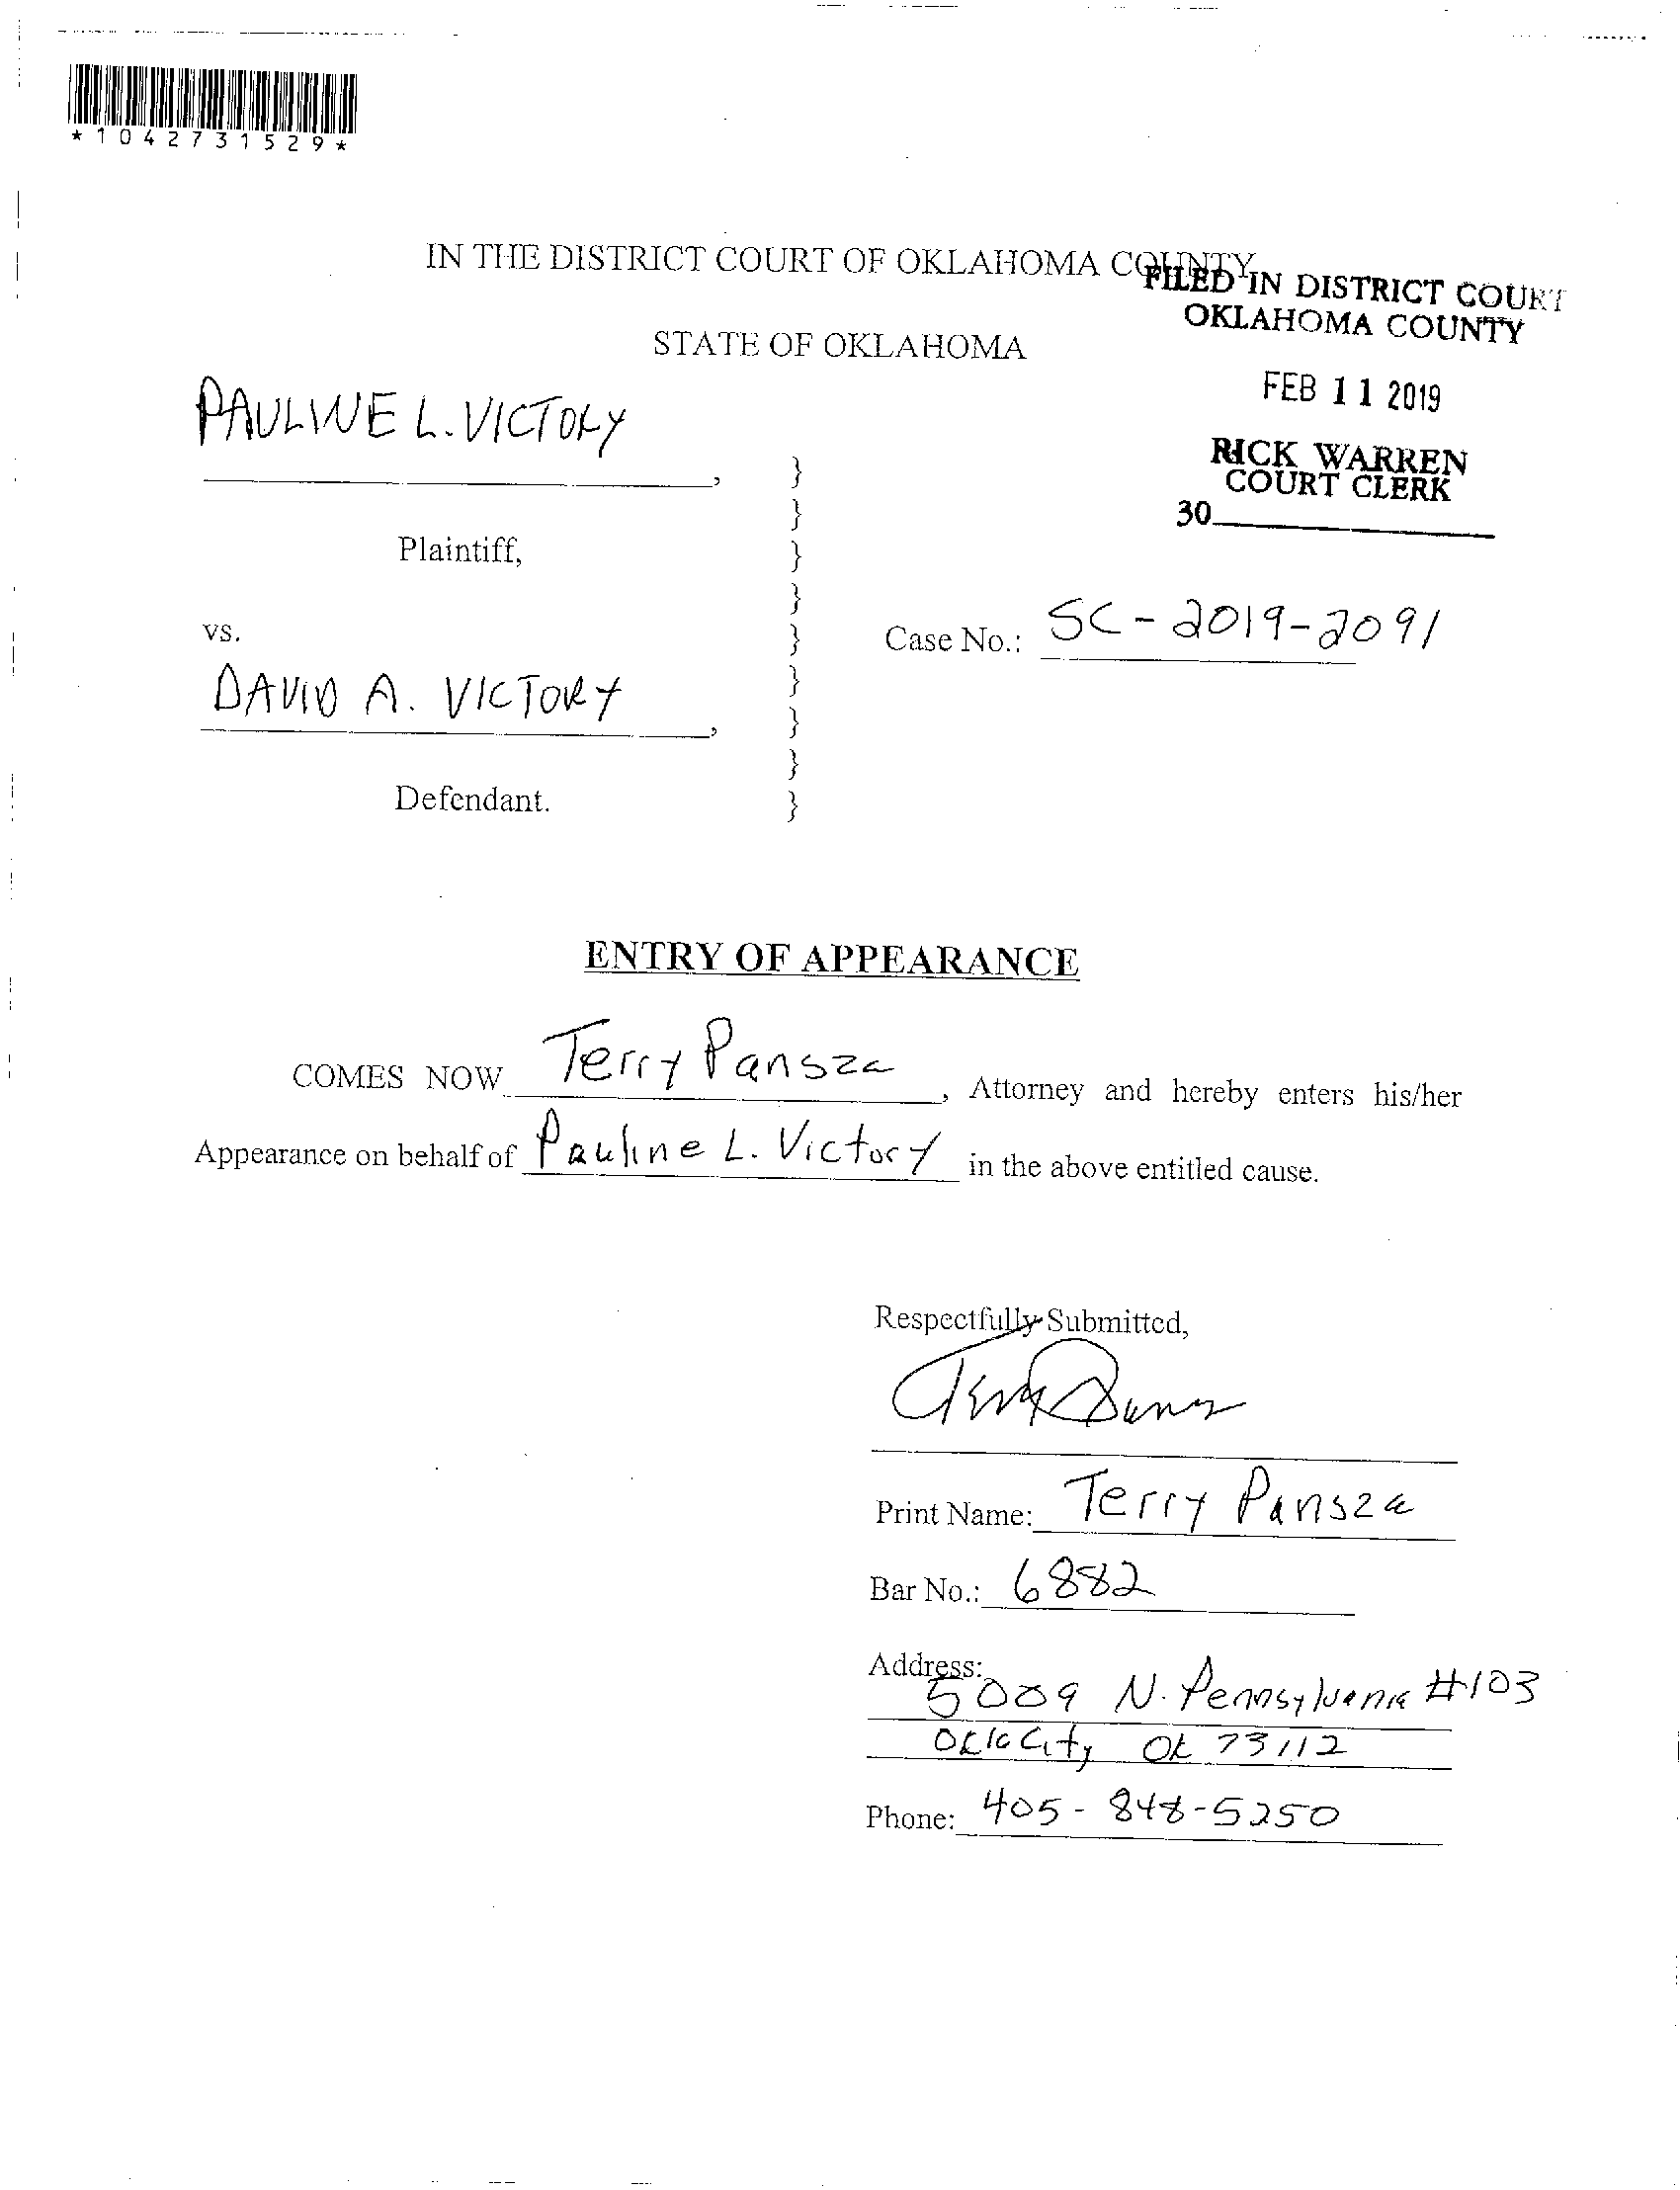 *1042731529*
IN THE DISTRICT COURT OF OKLAHOMA COUNTY
FILED IN DISTRICT COURT
OKLAHOMA COUNTY
STATE OF OKLAHOMA
FEB 11 2019
PAULINE L. VICTORY,
RICK WARREN
COURT CLERK
30
Plaintiff,
vs.
Case No.: SC-2019-2091
DAVID A. VICTORY,
Defendant.
ENTRY OF APPEARANCE
COMES NOW Terry Pansza, Attorney and hereby enters his/her
Appearance on behalf of Pauline L. Victory in the above entitled cause.
Respectfully Submitted,
Print Name: Terry Pansza
Bar No.: 6882
Address:
5009 N. Pennsylvania #103
Okla City Ok 73112
Phone: 405-848-5250